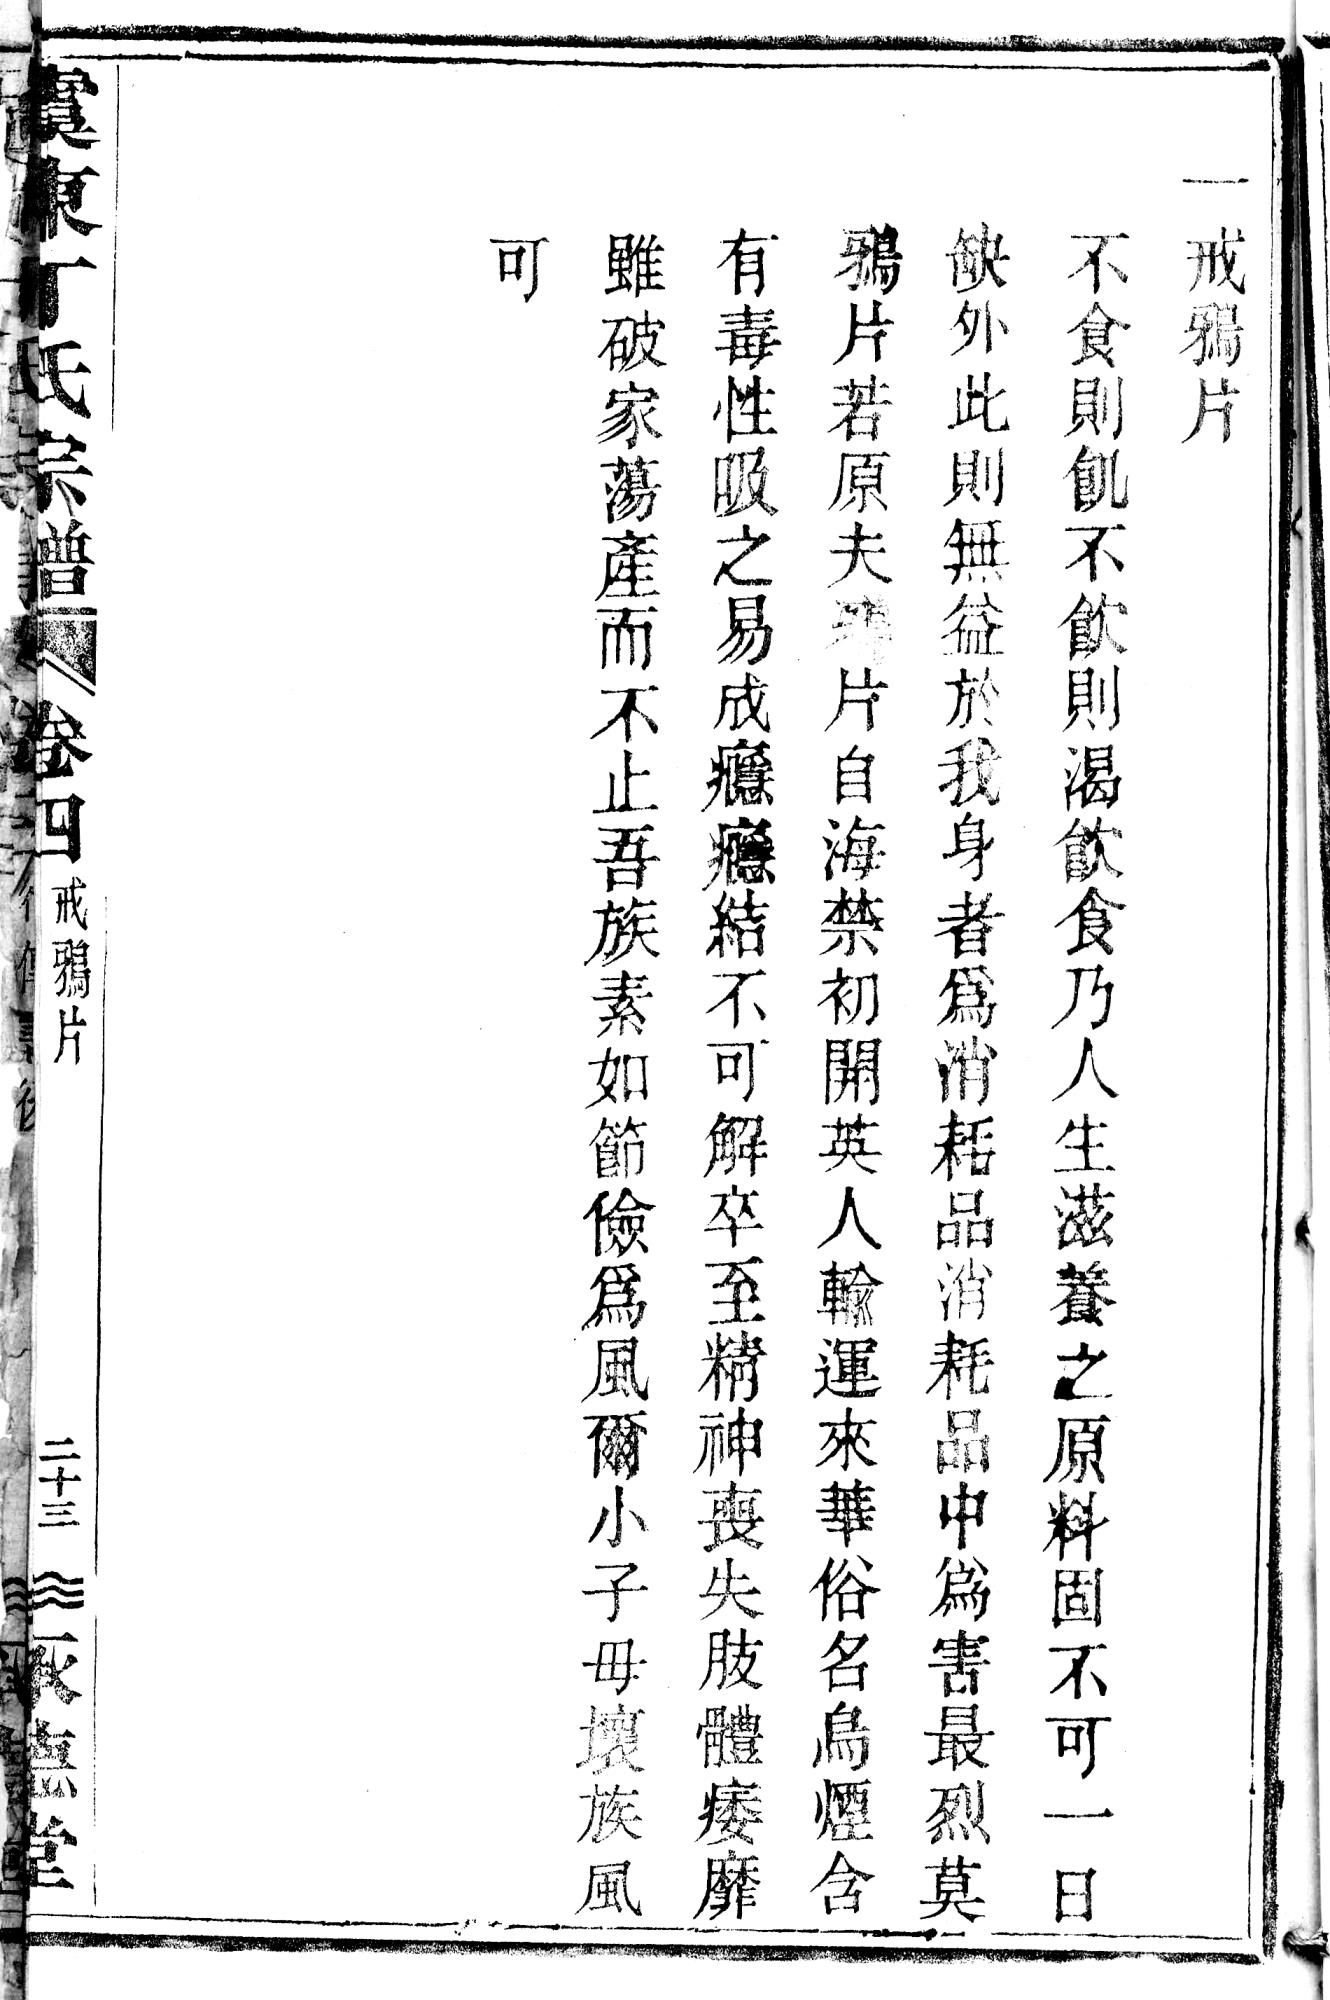 一戒鴉片
不食則飢不飲則渴飲食乃人生滋養之原料固不可一日
缺外此則無益於我身者爲消耗品消耗品中爲害最烈莫
鴉片若原夫鴉片自海禁初開英人輸運來華俗名烏煙含
有毒性吸之易成癮癮結不可解卒至精神喪失肢體痿靡
雖破家蕩產而不止吾族素如節儉爲風爾小子毋壞族風
可
虞東丁氏宗譜 卷四 戒鴉片 二十三 承德堂